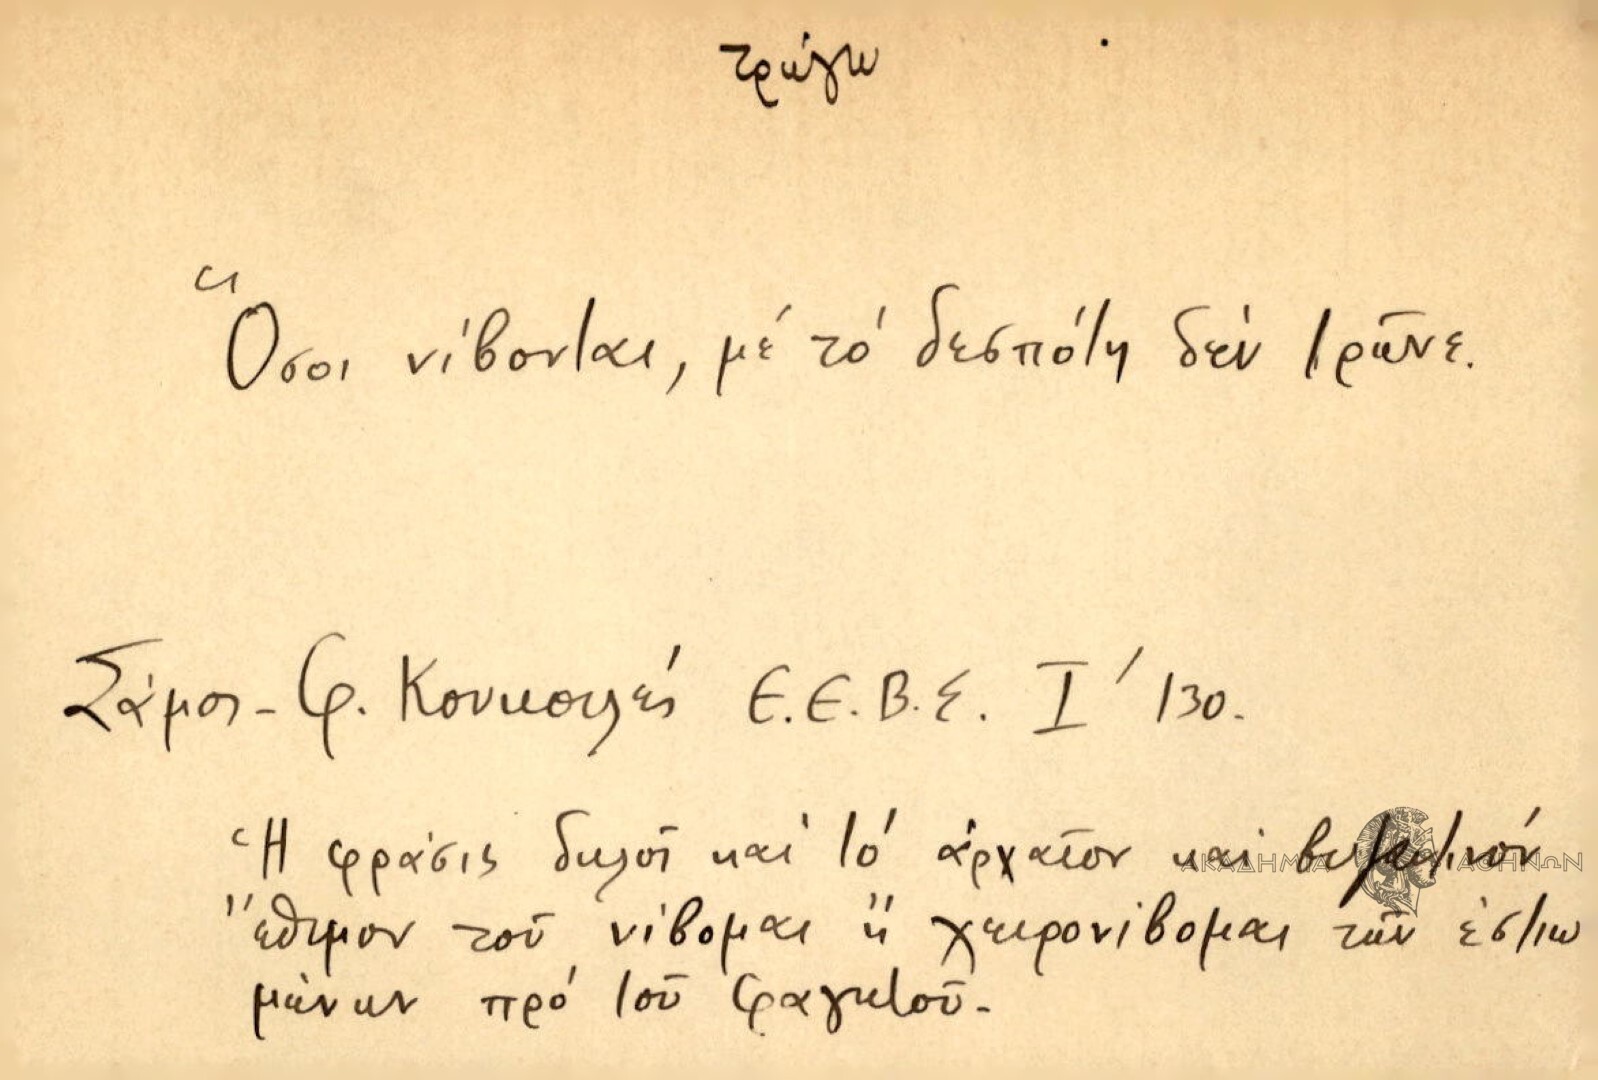 τρώγω
Ὅσοι νίβονται, μέ τό δεσπότη δέν τρῶνε.
Σάμος - Φ. Κουκουλές Ε.Ε.Β.Σ. Ι΄ 130.
Ἡ φράσις δηλοῖ καί τό ἀρχαῖον καί βυζαντινόν
ἔθιμον τοῦ νίβομαι ἤ χειρονίβομαι τῶν ἑστιω
μένων πρό τοῦ φαγητοῦ.
ΑΚΑΔΗΜΙΑ ΑΘΗΝΩΝ